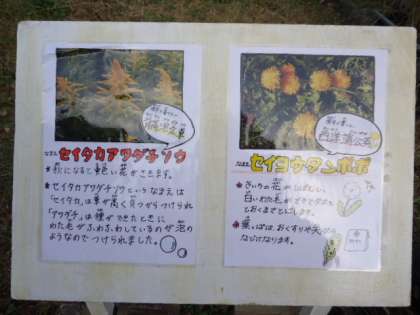 背高泡立草
なまえ セイタカアワダチソウ
★秋になると黄色い花がさきます。
★セイタカアワダチソウというなまえは
「セイタカ」は草が高く育つからつけられ
「アワダチ」は種ができたときに
わた毛がふわふわしているのが泡の
ようなのでつけられました。
西洋蒲公英
なまえ セイヨウタンポポ
きいろの花が
白いわた毛が
とおくまでとびます。
葉っぱは、おくすりや
なづけになります。